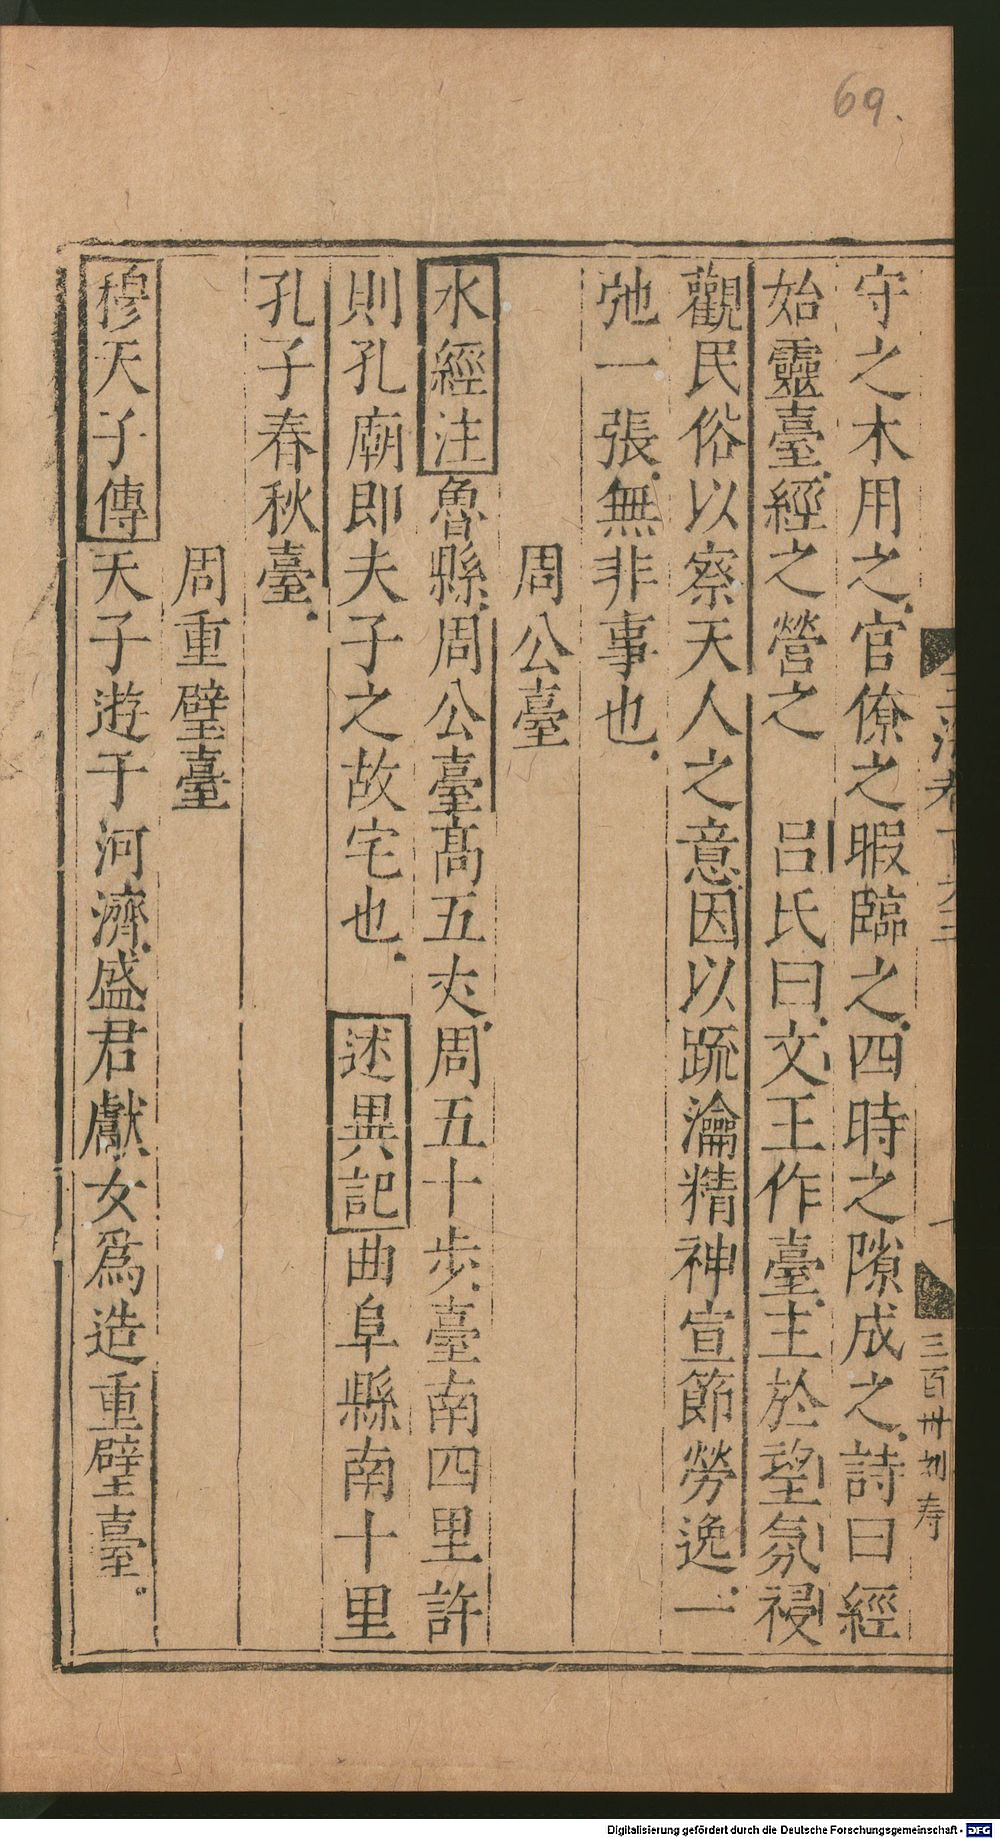 69.
守之木用之官僚之暇臨之四時之隙成之詩曰經
始靈臺經之營之 呂氏曰文王作臺主於望氛祲
觀民俗以察天人之意因以疏瀹精神宣節勞逸一
弛一張無非事也
周公臺
水經注魯縣周公臺高五丈周五十步臺南四里許
則孔廟即夫子之故宅也 述異記曲阜縣南十里
孔子春秋臺
周重璧臺
穆天子傳天子遊于河濟盛君獻女為造重璧臺
三百卅 刘寿
Digitalisierung gefördert durch die Deutsche Forschungsgemeinschaft - DFG